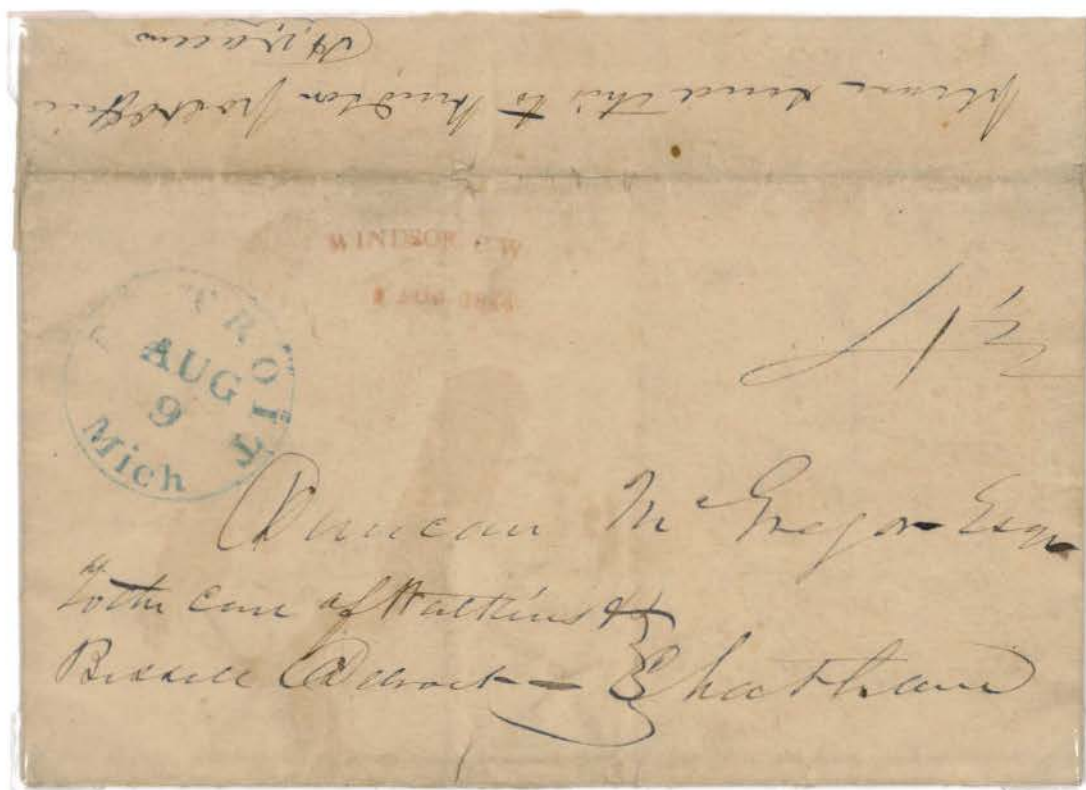 please send this to post office
WINDSOR C W
AUG
DETROIT
AUG
9
Mich
4½
Duncan McGregor Esq
to the care of Watkins &
Bissell Detroit — Chatham